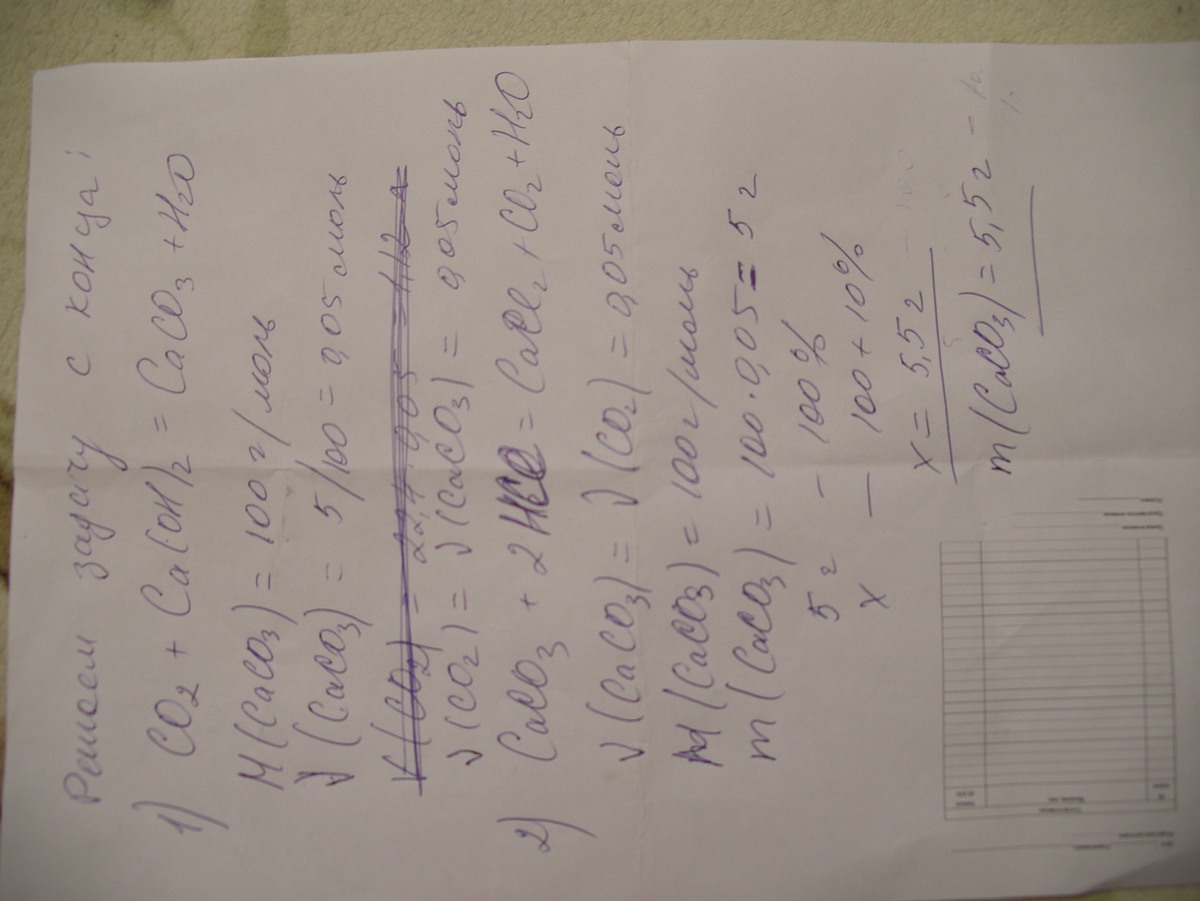 Решаем задачу с конца:
1) CO2 + Ca(OH)2 = CaCO3 + H2O
M(CaCO3) = 100 г/моль
ν(CaCO3) = 5/100 = 0,05 моль
V(CO2) = 22,4·0,05 = 1,12 л
ν(CO2) = ν(CaCO3) = 0,05 моль
2) CaCO3 + 2HCl = CaCl2 + CO2 + H2O
ν(CaCO3) = ν(CO2) = 0,05 моль
M(CaCO3) = 100 г/моль
m(CaCO3) = 100·0,05 = 5 г
5 г – 100%
x – 100 + 10%
x = 5,5 г
m(CaCO3) = 5,5 г